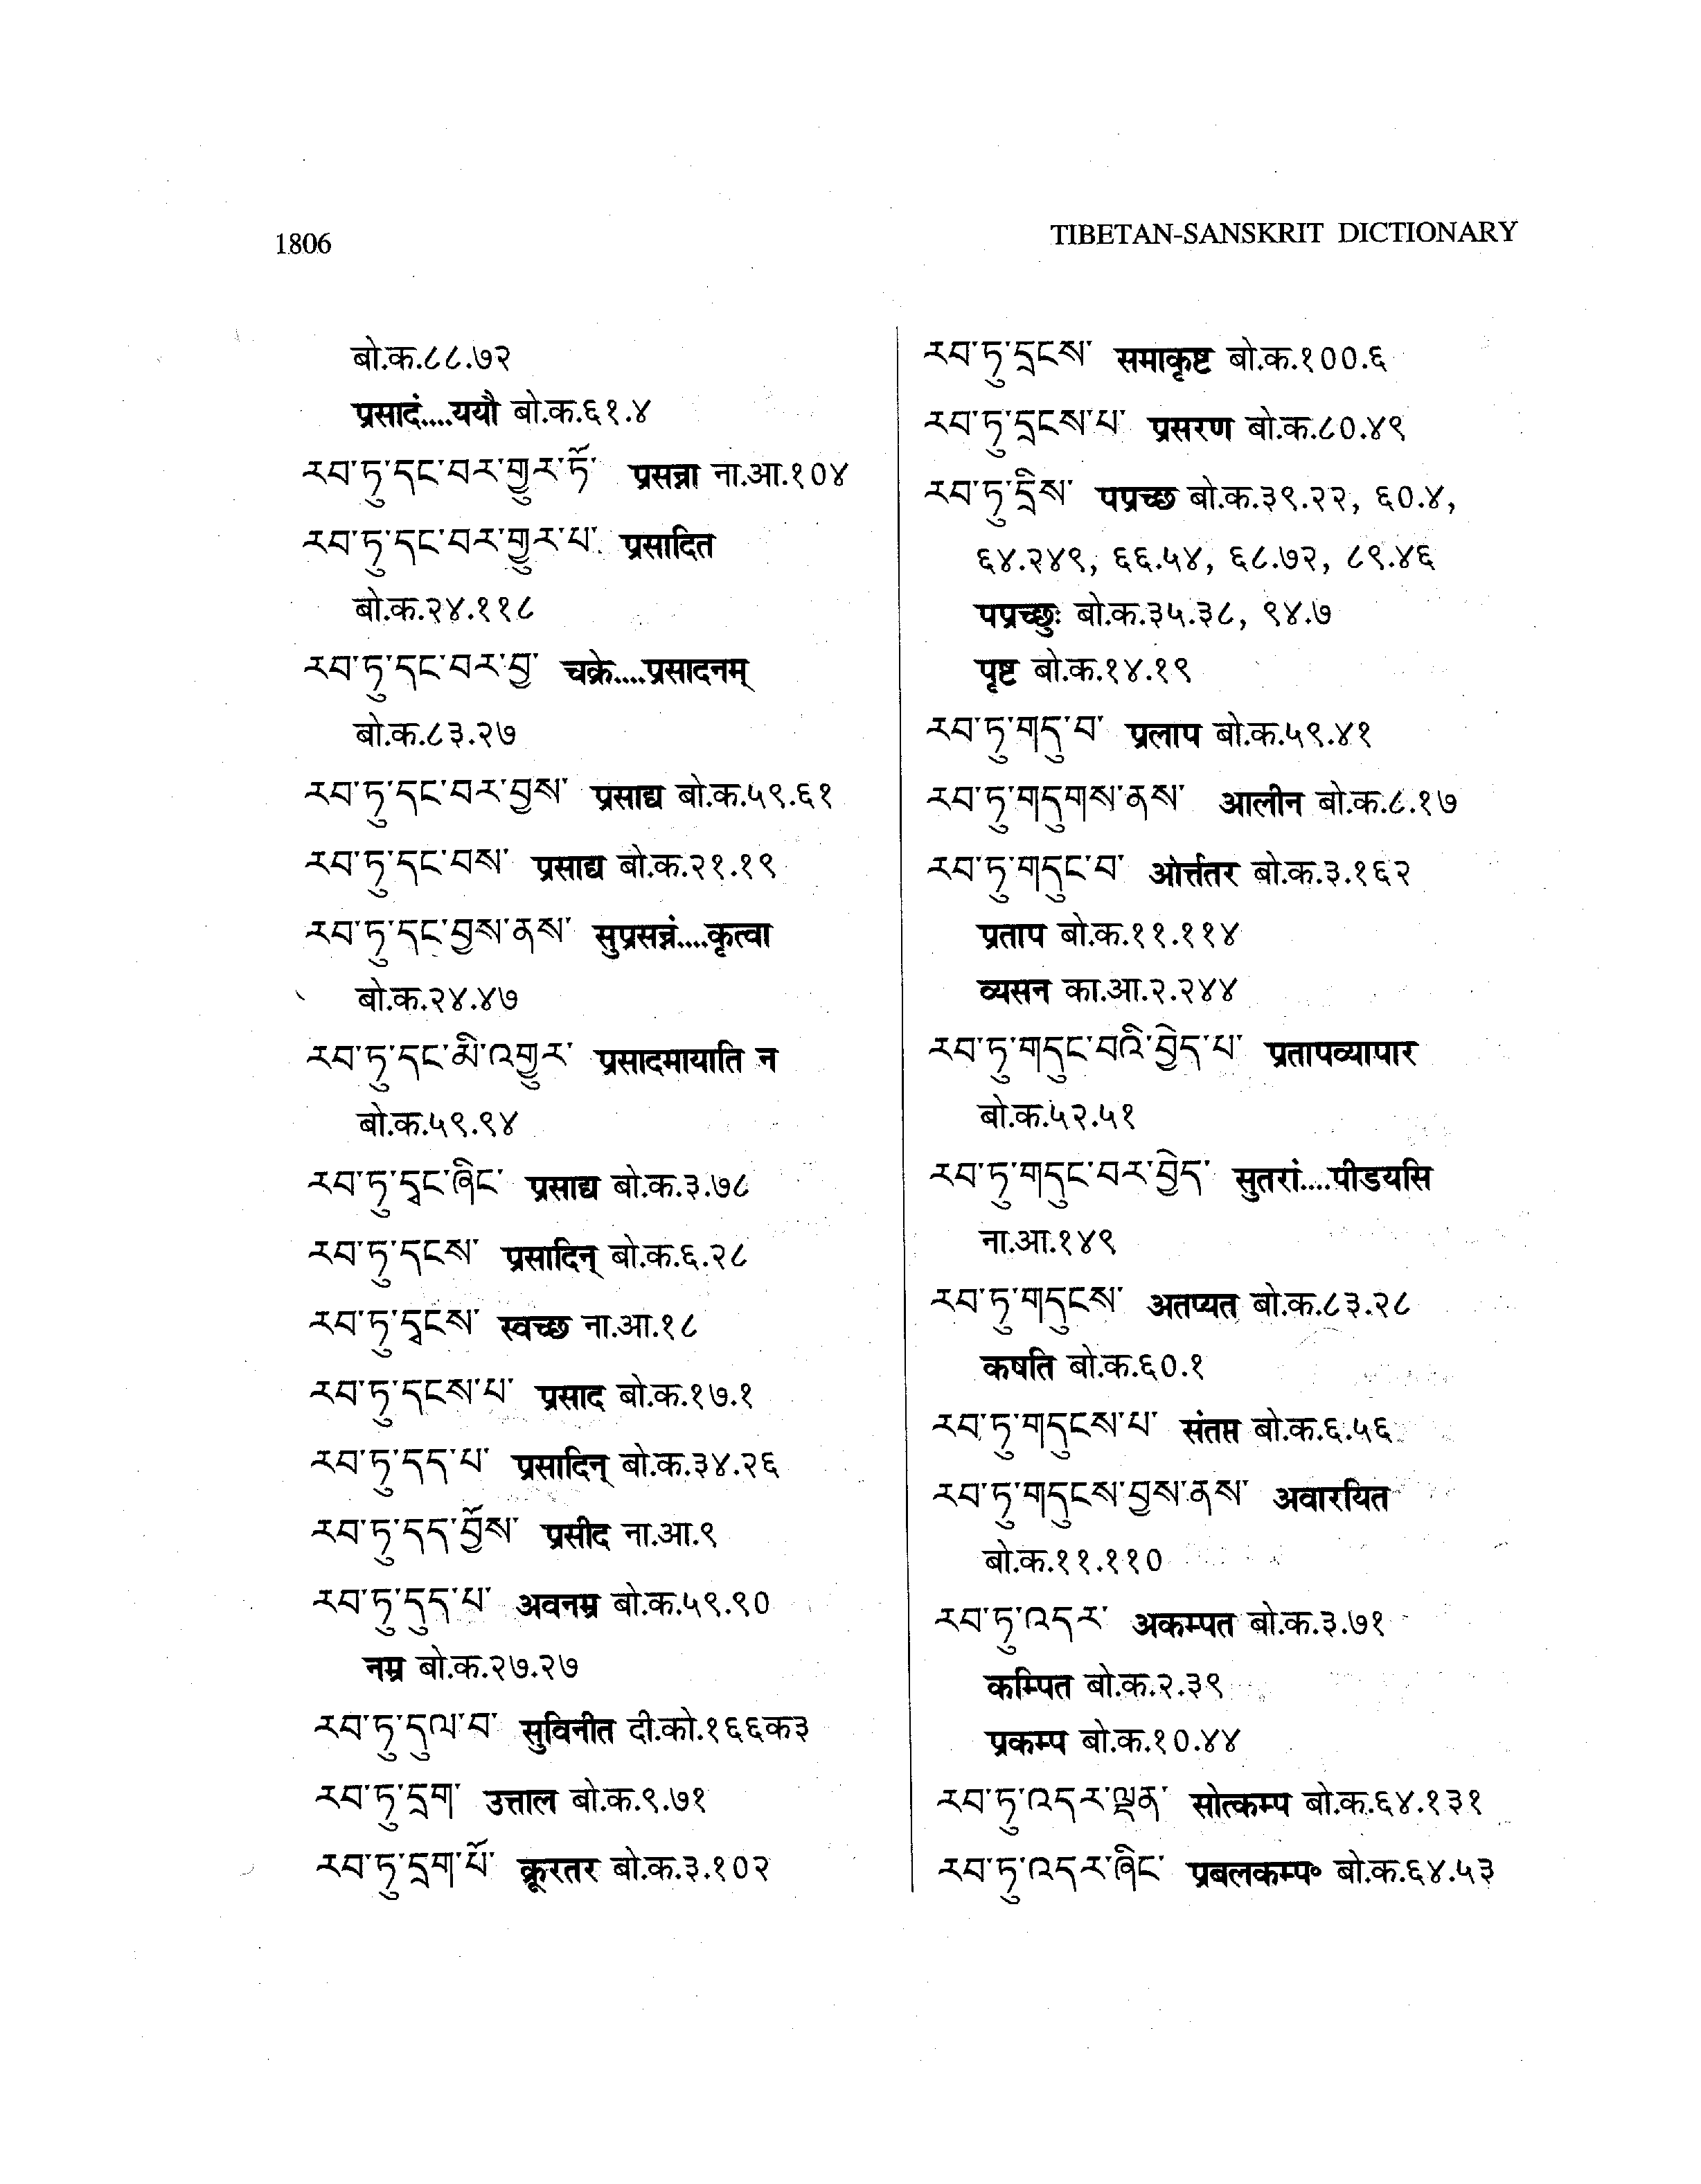 1806
TIBETAN-SANSKRIT DICTIONARY
बो.क.८८.७२
प्रसादं....ययौ बो.क.६१.४
རབ་ཏུ་དང་བར་གྱུར་ཏོ་ प्रसन्ना ना.आ.१०४
རབ་ཏུ་དང་བར་གྱུར་པ་ प्रसादित
बो.क.२४.११८
རབ་ཏུ་དང་བར་བྱ་ चक्रे....प्रसादनम्
बो.क.८३.२७
རབ་ཏུ་དང་བར་བྱས་ प्रसाद्य बो.क.५९.६१
རབ་ཏུ་དང་བས་ प्रसाद्य बो.क.२१.१९
རབ་ཏུ་དང་བྱས་ནས་ सुप्रसन्नं....कृत्वा
बो.क.२४.४७
རབ་ཏུ་དང་མི་འགྱུར་ प्रसादमायाति न
बो.क.५९.९४
རབ་ཏུ་དྭང་ཞིང་ प्रसाद्य बो.क.३.७८
རབ་ཏུ་དངས་ प्रसादिन् बो.क.६.२८
རབ་ཏུ་དྭངས་ स्वच्छ ना.आ.१८
རབ་ཏུ་དངས་པ་ प्रसाद बो.क.१७.१
རབ་ཏུ་དད་པ་ प्रसादिन् बो.क.३४.२६
རབ་ཏུ་དད་བྱོས་ प्रसीद ना.आ.९
རབ་ཏུ་དུད་པ་ अवनम्र बो.क.५९.९०
नम्र बो.क.२७.२७
རབ་ཏུ་དུལ་བ་ सुविनीत दी.को.१६६क३
རབ་ཏུ་དྲག་ उत्ताल बो.क.९.७१
རབ་ཏུ་དྲག་པོ་ क्रूरतर बो.क.३.१०२
རབ་ཏུ་དྲངས་ समाकृष्ट बो.क.१००.६
རབ་ཏུ་དྲངས་པ་ प्रसरण बो.क.८०.४९
རབ་ཏུ་དྲིས་ पप्रच्छ बो.क.३९.२२, ६०.४,
६४.२४९, ६६.५४, ६८.७२, ८९.४६
पप्रच्छुः बो.क.३५.३८, ९४.७
पृष्ट बो.क.१४.१९
རབ་ཏུ་གདུ་བ་ प्रलाप बो.क.५९.४१
རབ་ཏུ་གདུགས་ནས་ आलीन बो.क.८.१७
རབ་ཏུ་གདུང་བ་ ओर्त्ततर बो.क.३.१६२
प्रताप बो.क.११.११४
व्यसन का.आ.२.२४४
རབ་ཏུ་གདུང་བའི་བྱེད་པ་ प्रतापव्यापार
बो.क.५२.५१
རབ་ཏུ་གདུང་བར་བྱེད་ सुतरां....पीडयसि
ना.आ.१४९
རབ་ཏུ་གདུངས་ अतप्यत बो.क.८३.२८
कषति बो.क.६०.१
རབ་ཏུ་གདུངས་པ་ संतप्त बो.क.६.५६
རབ་ཏུ་གདུངས་བྱས་ནས་ अवारयित
बो.क.११.११०
རབ་ཏུ་འདར་ अकम्पत बो.क.३.७१
कम्पित बो.क.२.३९
प्रकम्प बो.क.१०.४४
རབ་ཏུ་འདར་ལྡན་ सोत्कम्प बो.क.६४.१३१
རབ་ཏུ་འདར་ཞིང་ प्रबलकम्प॰ बो.क.६४.५३